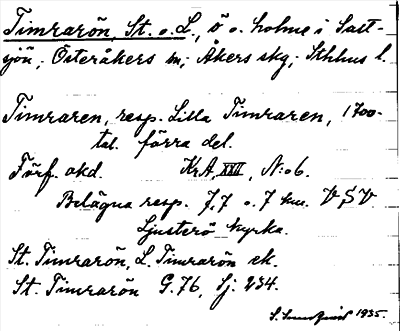 Timrarön, St. o. L., ö o. holme i Salt-
sjön, Österåkers sn, Åkers skg, Sthlms l.
Timraren, resp. Lilla Timraren, 1700-
tal. förra del.
Förf. okd. KrA, XXII, N:o 6.
Belägna resp. 7,7 o. 7 km. VSV
Ljusterö kyrka.
St. Timrarön, L. Timrarön ek.
St. Timrarön G.76, Sj: 234.
S. 1935.